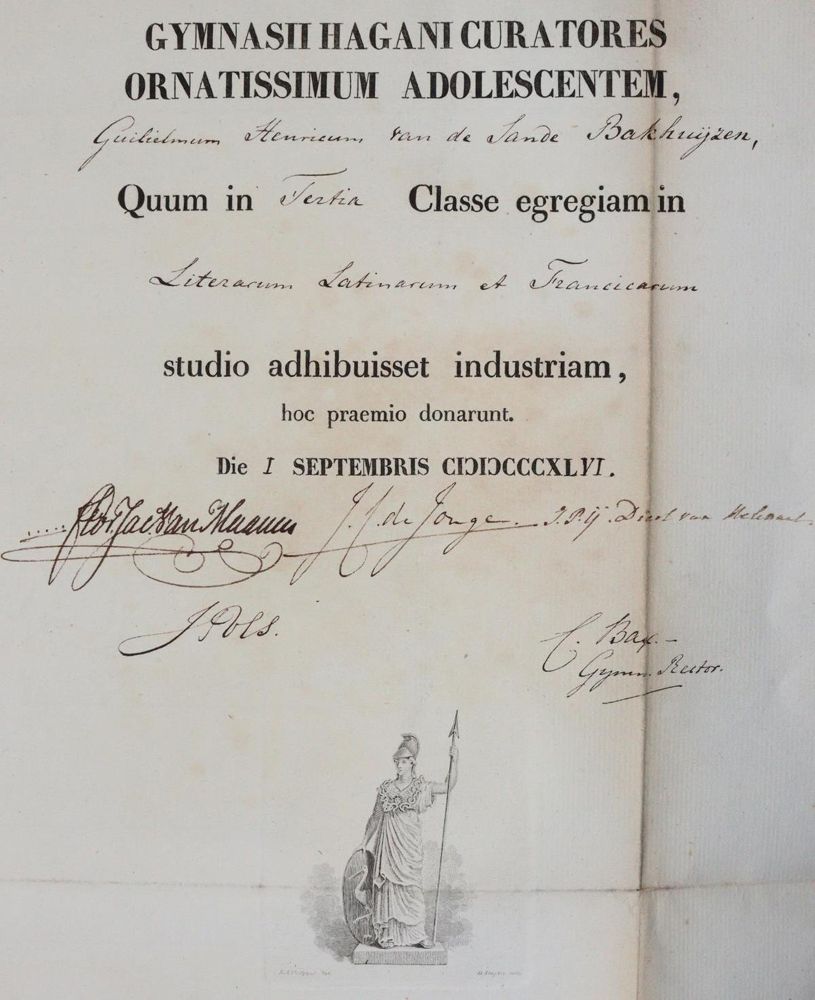 GYMNASII HAGANI CURATORES
ORNATISSIMUM ADOLESCENTEM,
Guilielmum Henricum van de Sande Bakhuijzen,
Quum in Tertia Classe egregiam in
Literarum Latinarum et Francicarum
studio adhibuisset industriam,
hoc praemio donarunt.
Die I SEPTEMBRIS CIƆIƆCCCXLVI.
J. C. de Jonge. J. P. ij.
C. Bax.
Gymn. Rector.